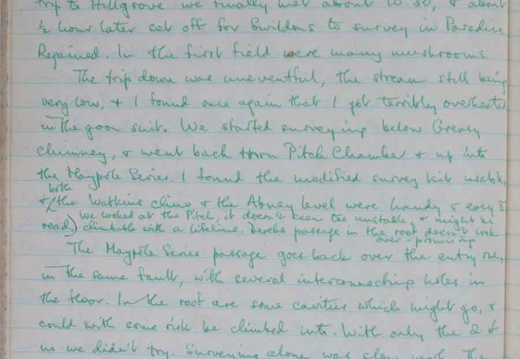 trip to Hillgrove we finally met about 10 30, & about
½ hour later set off for Swildons to survey in Paradise
Regained. In the first field were many mushrooms
The trip down was uneventful, the stream still being
very low, & I found once again that I got terribly overheated
in the goon suit. We started surveying below Greasy
Chimney, & went back from Pitch Chamber & up into
the Maypole Series. I found the modified survey kit usable,
& both the Watkins clino & the Abney level were handy & easy to
read) We looked at the Pitch, it doesn't seem too unstable, & might be
climbable with a lifeline. passage in the roof doesn't look
over-promising
The Maypole Series passage goes back over the entry only
in the same fault, with several interconnecting holes in
the floor. In the roof are some cavities which might go, &
could with some risk be climbed into. With only the 2 of
us we didn't try. Surveying alone was slow work. The